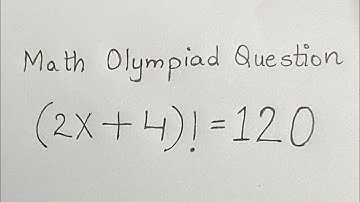 Math Olympiad Question
(2X+4)!=120